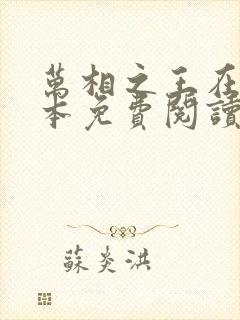 萬相之王在
本免費閱讀
蘇炎洪